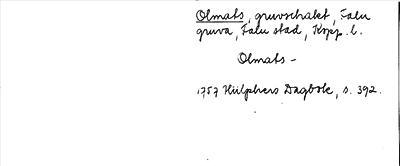 Olmats, gruvschakt, Falu
gruva, Falu stad, Kopp. l.
Olmats –
1757 Hülphers Dagbok, s. 392.